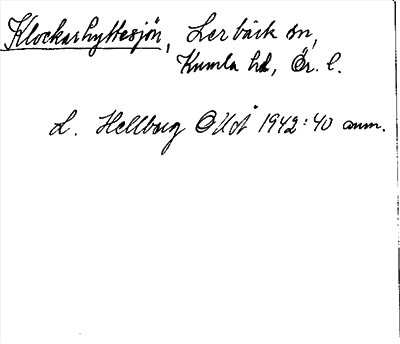 Klockarhyttesjön, Lerbäck sn,
Kumla hd, Ör. l.
L. Hellberg OUÅ 1942:40 anm.